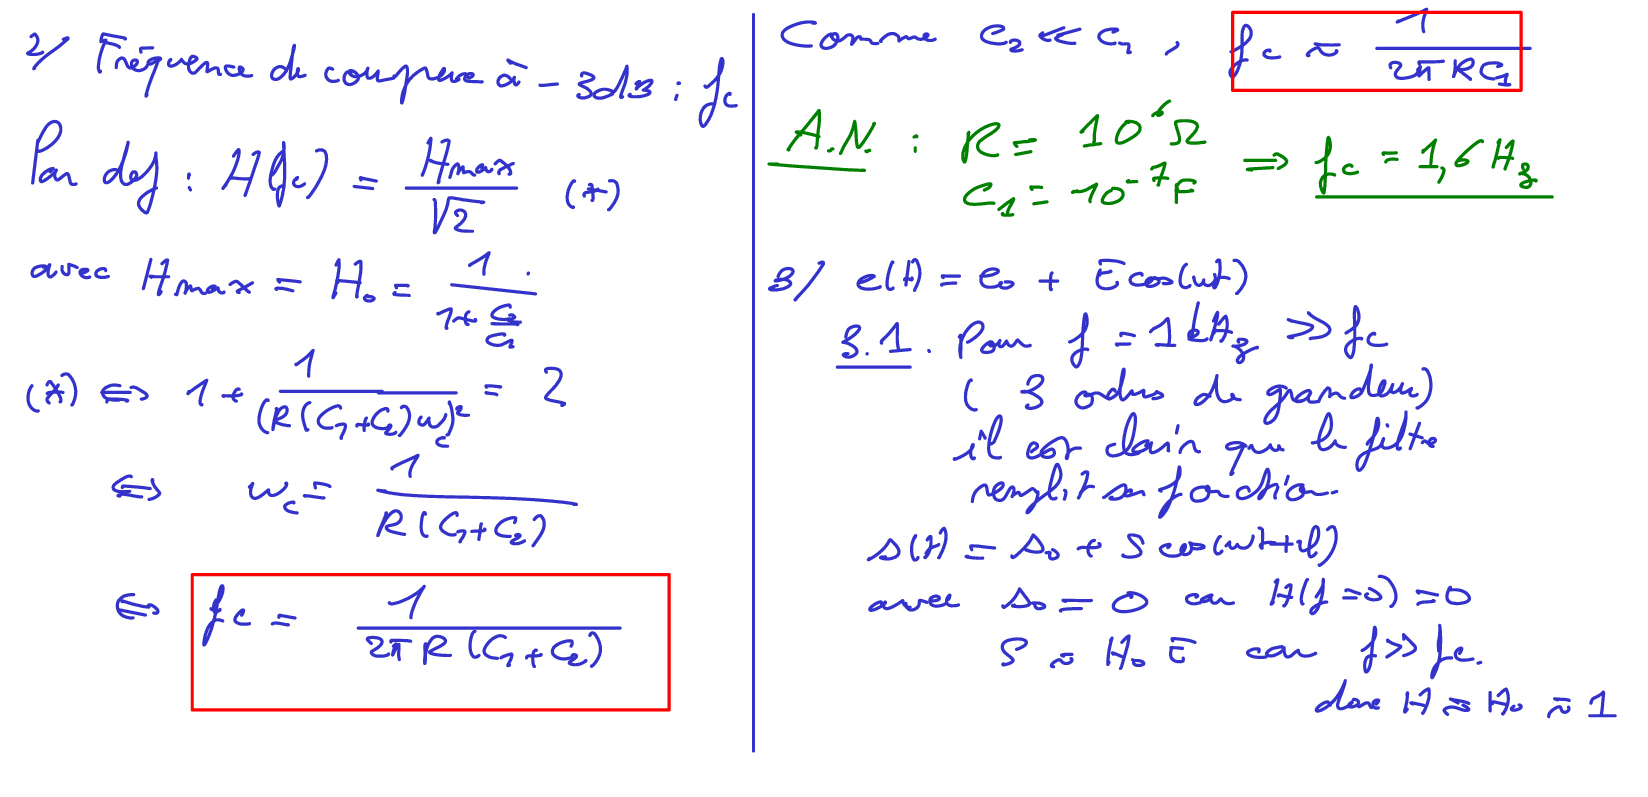 2/ Fréquence de coupure à -3dB : fc
Par def : H(fc) = Hmax/√2 (*)
avec Hmax = H₀ = 1/(1+C₂/C₁) .
(*) ⇔ 1 + 1/(R(C₁+C₂)ωc)² = 2
⇔ ωc = 1/(R(C₁+C₂))
⇔ fc = 1/(2πR(C₁+C₂))
Comme C₂ << C₁ , fc ≈ 1/(2πRC₁)
A.N. : R = 10⁶Ω
C₁ = 10⁻⁷F
⇒ fc = 1,6Hz
3/ e(t) = e₀ + E cos(ωt)
3.1. Pour f = 1kHz >> fc
( 3 ordres de grandeur)
il est clair que le filtre
remplit sa fonction.
s(t) = s₀ + S cos(ωt+φ)
avec s₀ = 0 car H(f=0) = 0
S ≈ H₀ E car f >> fc.
donc H ≈ H₀ ≈ 1